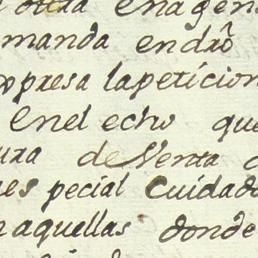 otra enagen
manda en dr̃o
presa la peticion
En el echo que
ura de Venta
es pecial Cuidado
aquellas donde